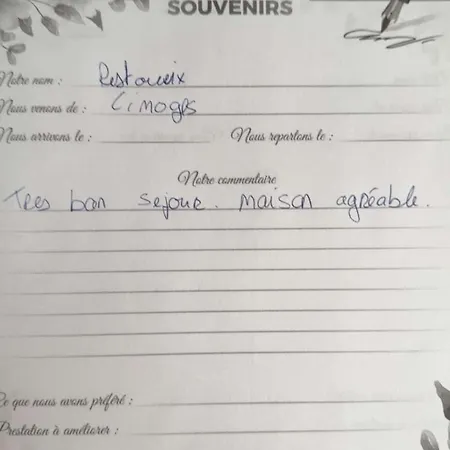 SOUVENIRS
Notre nom : Restoueix
Nous venons de : Limoges
Nous arrivons le : Nous repartons le :
Notre commentaire
Tres bon sejour. maison agréable.
Ce que nous avons préféré :
Prestation à améliorer :